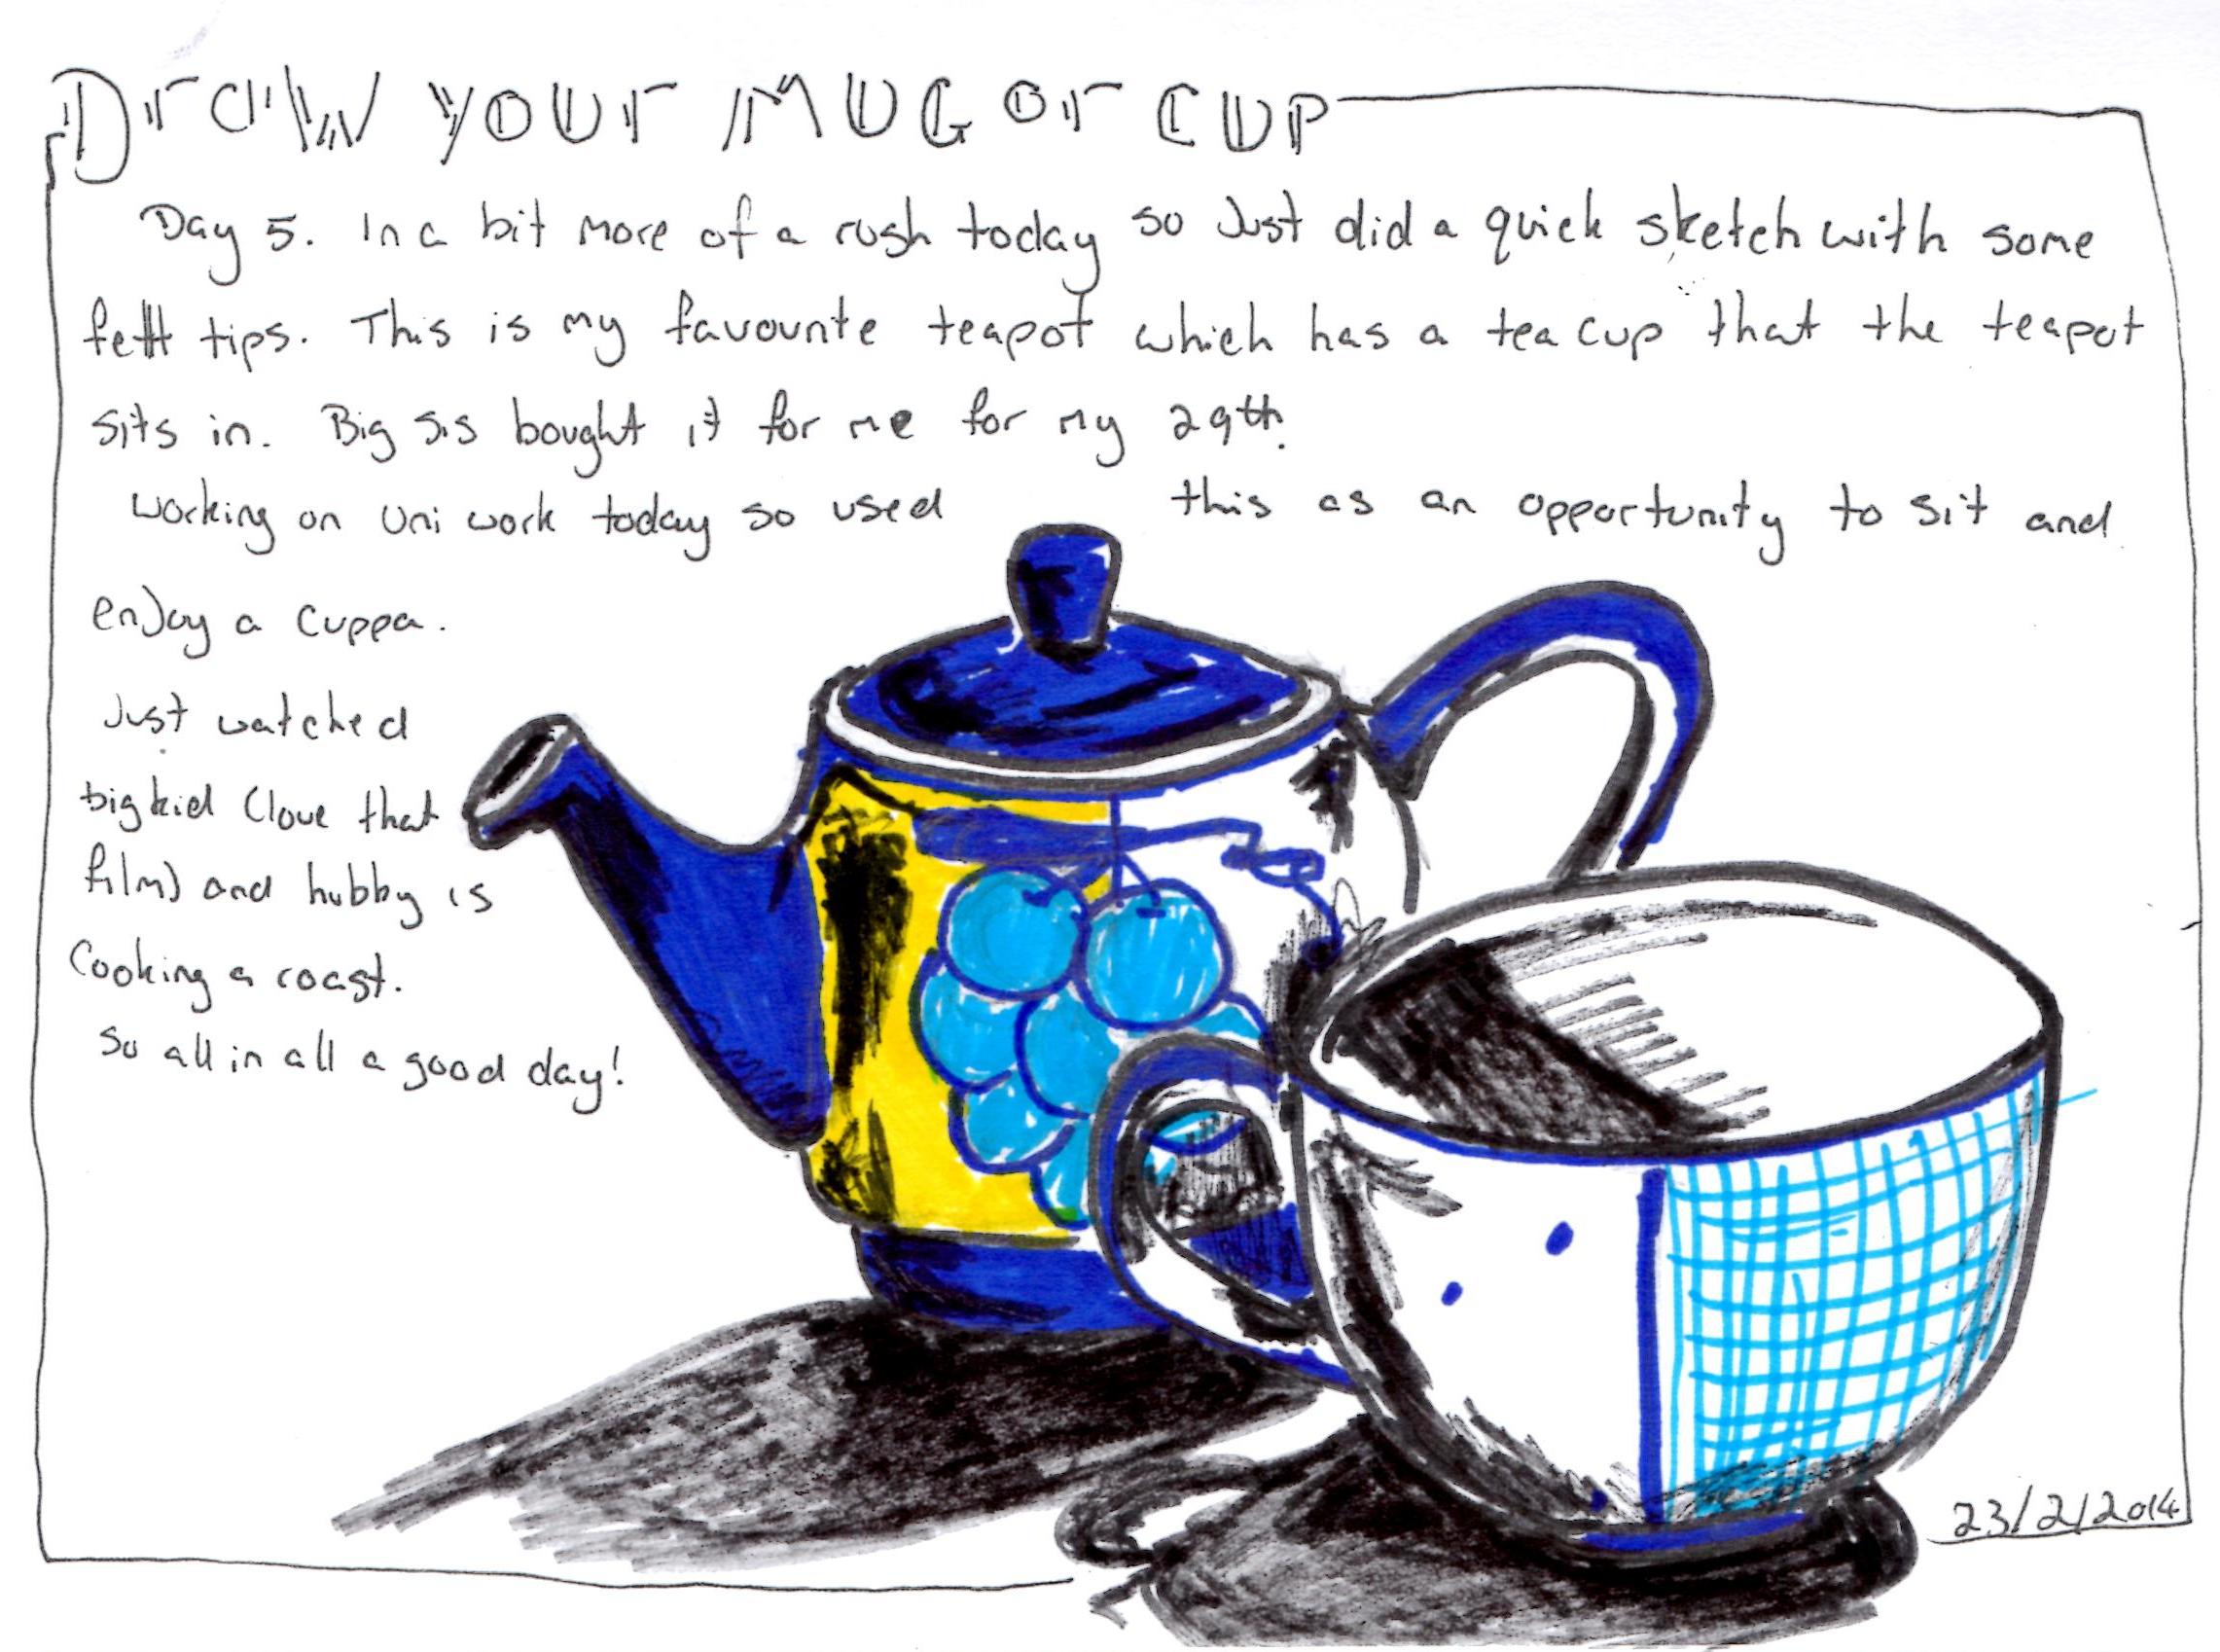 Draw your mug or cup
Day 5. In a bit more of a rush today so Just did a quick sketch with some
felt tips. This is my favourite teapot which has a tea cup that the teapot
sits in. Big sis bought it for me for my 29th.
Working on Uni work today so used this as an opportunity to sit and
enjoy a cuppa.
Just watched
big kid (love that
film) and hubby is
Cooking a roast.
So all in all a good day!
23/2/2014